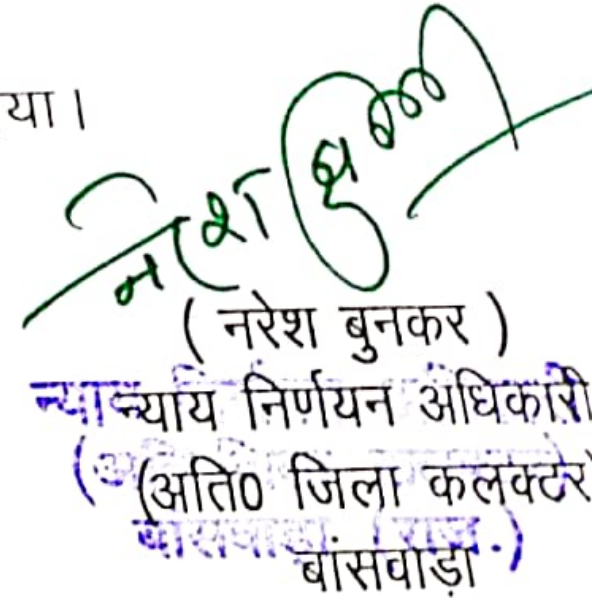 या।
नरेश
( नरेश बुनकर )
न्याय निर्णयन अधिकारी
(अति0 जिला कलक्टर
बांसवाड़ा